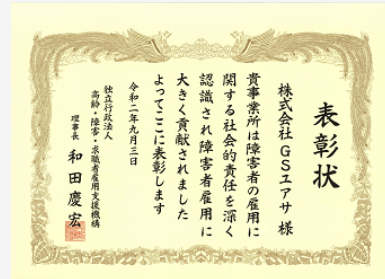 表彰状
株式会社 GSユアサ 様
貴事業所は障害者の雇用に
関する社会的責任を深く
認識され障害者雇用に
大きく貢献されました
よってここに表彰します
令和二年九月三日
独立行政法人
高齢・障害・求職者雇用支援機構
理事長 和田慶宏